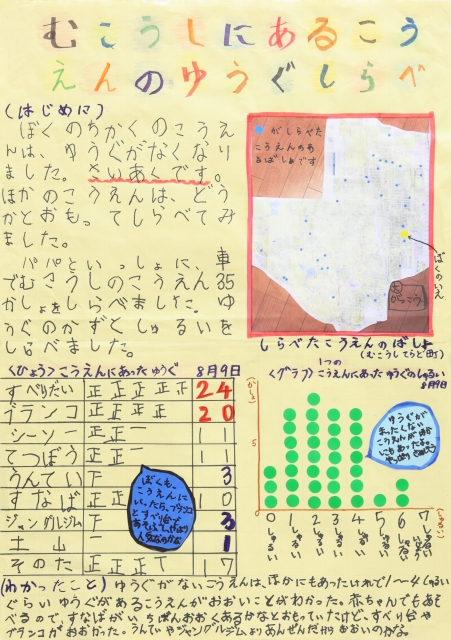 むこうしにあるこう
えんのゆうぐしらべ
(はじめに)
ぼくのちかくのこうえ
んは、ゆうぐがなくなり
ました。さいあくです。
ほかのこうえんは、どう
かとおもってしらべてみ
ました。
パパといっしょに、車
でむこうしのこうえん35
かしょをしらべました。ゆ
うぐのかずとしゅるいを
しらべました。
がしらべた
こうえんのあ
るばしょです
ぼくのいえ
がっこう
しらべたこうえんのばしょ
(むこうしてらど町)
〈ひょう〉こうえんにあったゆうぐ 8月9日
すべりだい 正正正正正 24
ブランコ 正正正正 20
シーソー 正正一 11
てつぼう 正正一 11
うんてい 下 3
すなば 正正 10
ジャングルジム 下 3
土山 一 1
そのた 正正正丅 17
ぼくも、
こうえんに
いったら、ブランコ
とすべり台で
あそぶ
人気なのかな
1つの
〈グラフ〉こうえんにあったゆうぐのしゅるい
8月9日
(かしょ)
5
0
0しゅるい
1しゅるい
2しゅるい
3しゅるい
4しゅるい
5しゅるい
6しゅるい
7しゅるい
(しゅるい)
ゆうぐが
まったくない
こうえんがほか
にもあったよ。
(わかったこと) ゆうぐがないこうえんは、ほかにもあったけれど1〜4しゅるい
ぐらいゆうぐがあるこうえんがおおいことがわかった。赤ちゃんでもあそ
べるので、すなばがいちばんおおくあるかなとおもっていたけど、すべり台や
ブランコがおおかった。うんていやジャングルジムよりあんぜんだからおおいのかな。